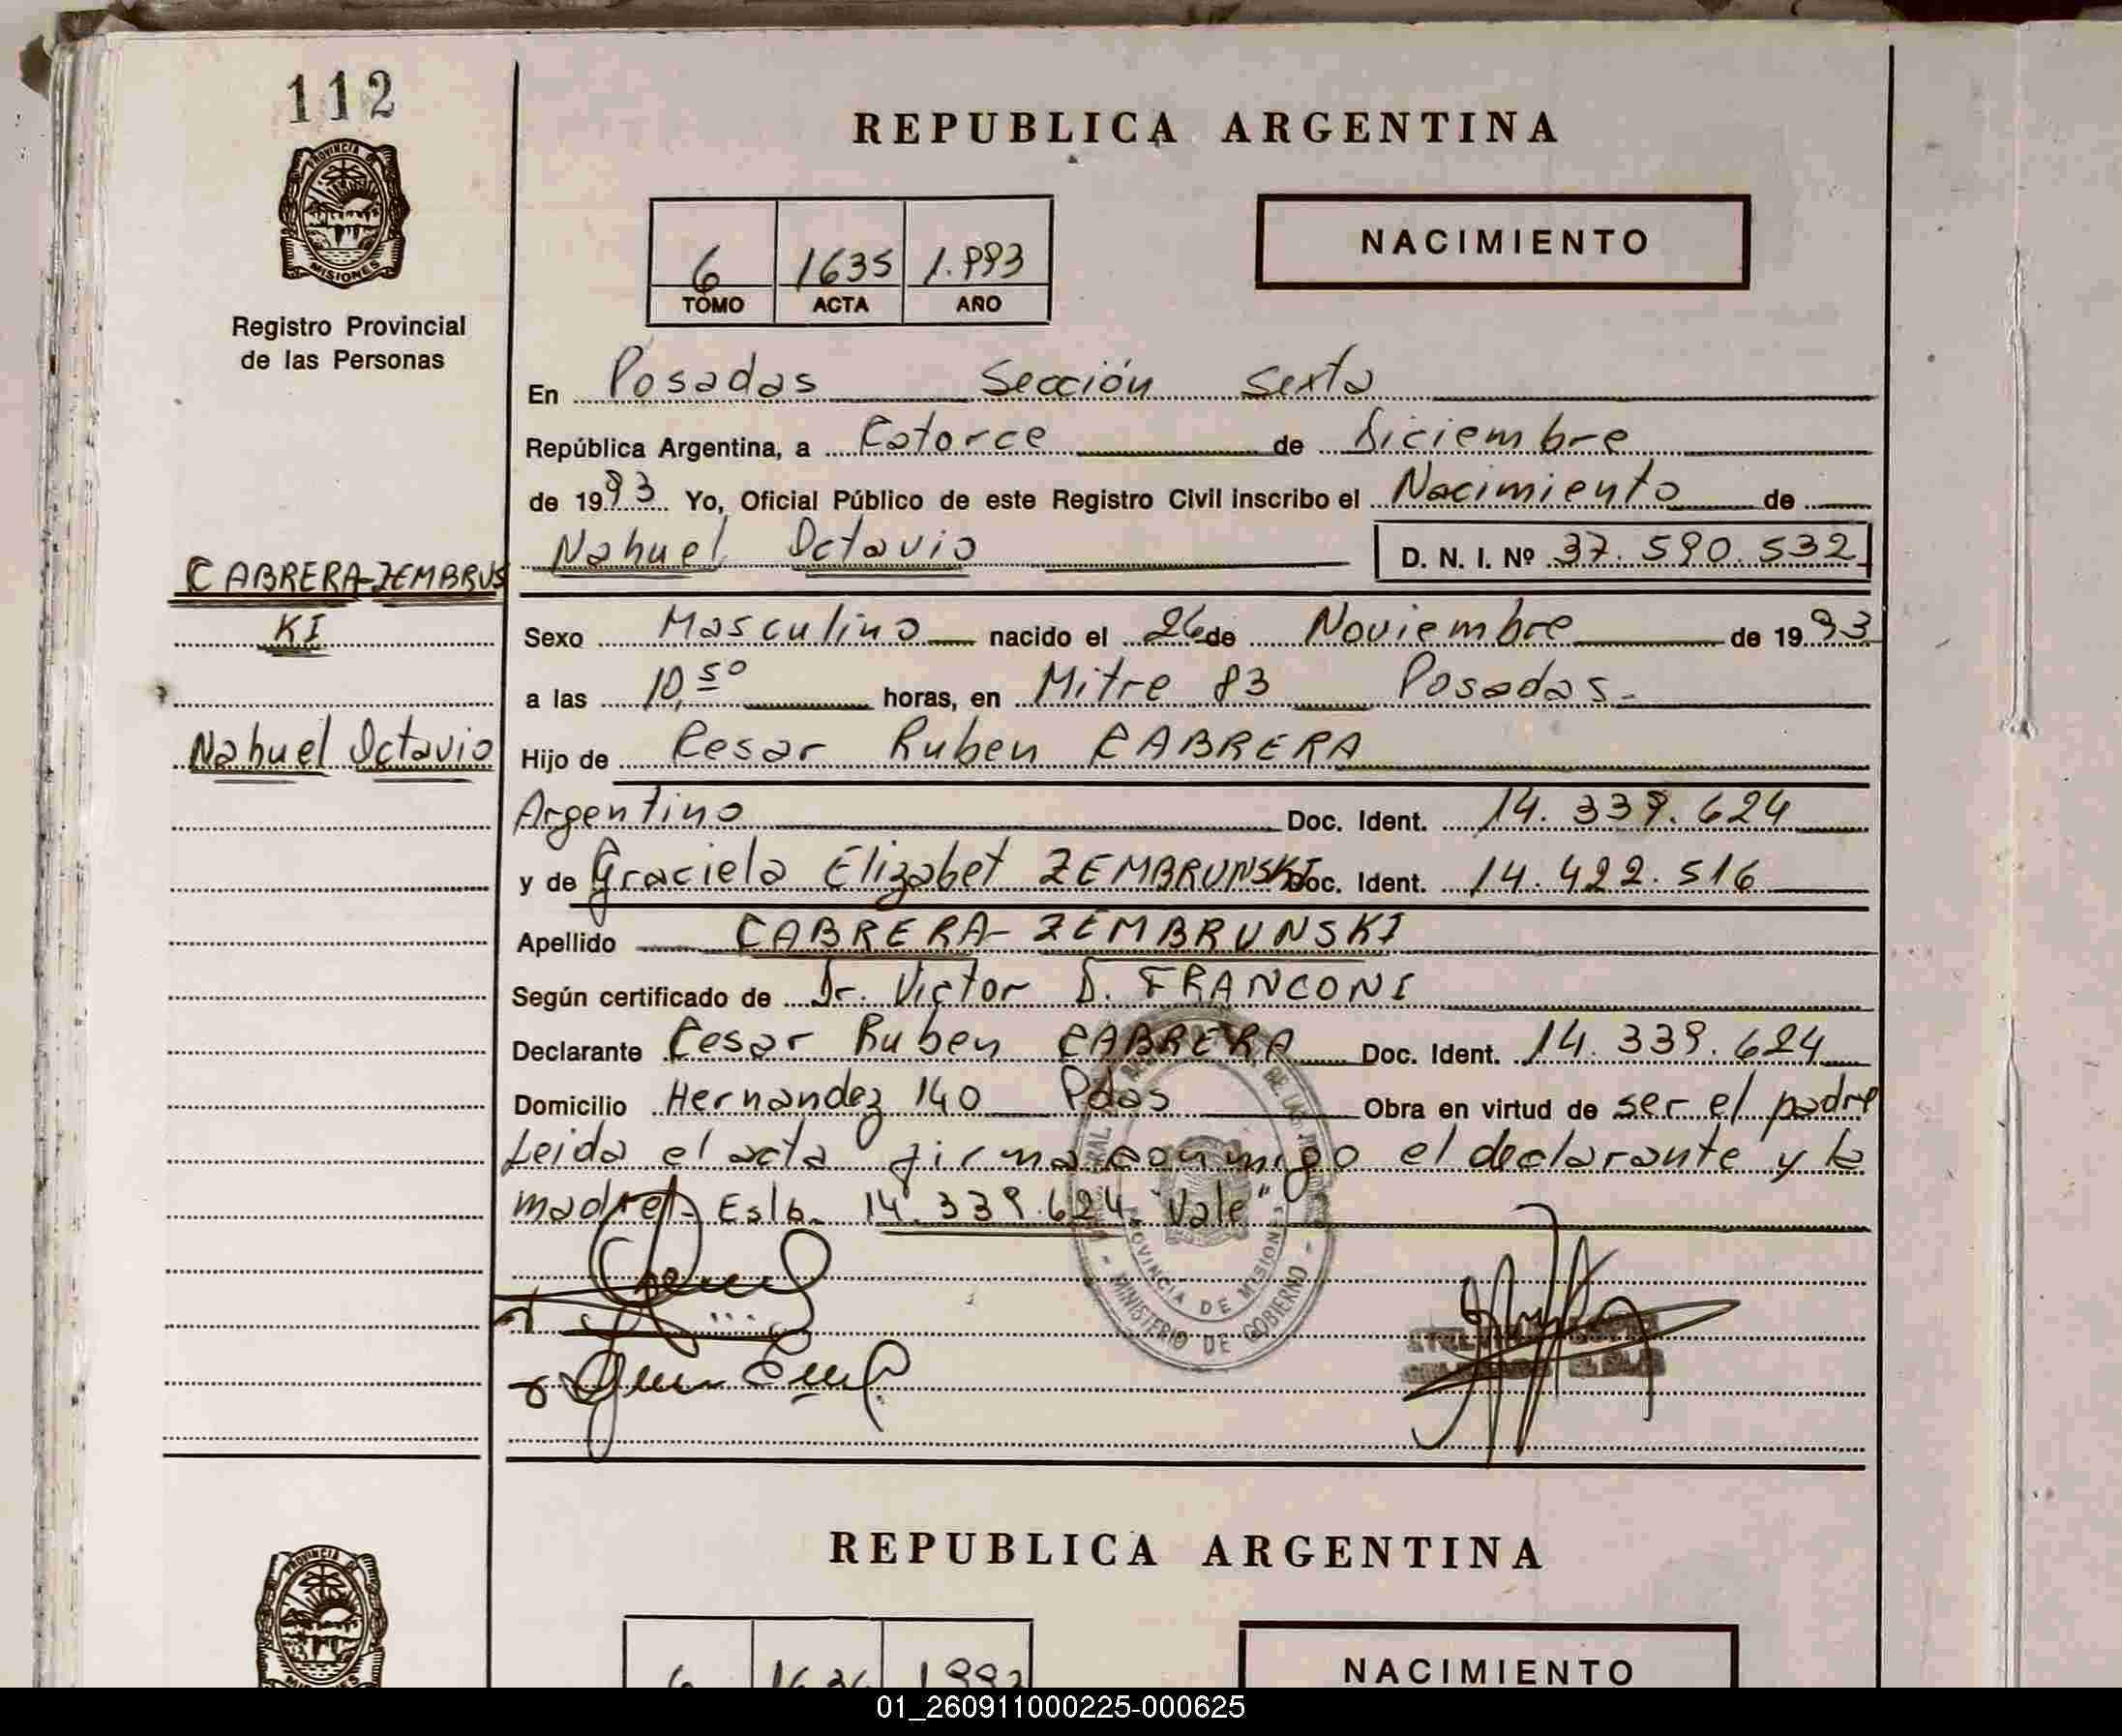 112
REPUBLICA ARGENTINA
PROVINCIA D
MISIONES
Registro Provincial
de las Personas
6 1635 1.993
TOMO ACTA AÑO
NACIMIENTO
En Posadas Sección Sexta
República Argentina, a Catorce de Diciembre
de 1993 Yo, Oficial Público de este Registro Civil inscribo el Nacimiento de
Nahuel Octavio D. N. I. Nº 37.590.532
CABRERA-ZEMBRUS
KI
Sexo Masculino nacido el 26 de Noviembre de 1993
a las 10,50 horas, en Mitre 83 Posadas.-
Nahuel Octavio
Hijo de Cesar Ruben CABRERA
Argentino Doc. Ident. 14.339.624
y de Graciela Elizabet ZEMBRUNSKI Doc. Ident. 14.422.516
Apellido CABRERA-ZEMBRUNSKI
Según certificado de Dr. Victor D. FRANCONI
Declarante Cesar Ruben CABRERA Doc. Ident. 14.339.624
Domicilio Hernandez 140 Pdas Obra en virtud de ser el padre
Leida el acta firma conmigo el declarante y la
madre.- Eslb. 14.339.624 "Vale"
PROVINCIA DE MISIONES
MINISTERIO DE GOBIERNO
REPUBLICA ARGENTINA
PROVINCIA D
6 1636 1993
NACIMIENTO
01_260911000225-000625